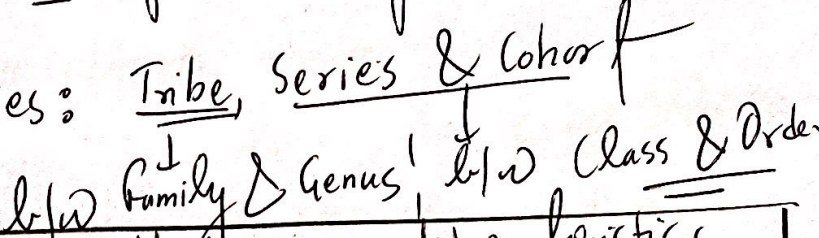 es: Tribe, Series & Cohort
↓ ↓
b/w Family & Genus, b/w Class & Orde